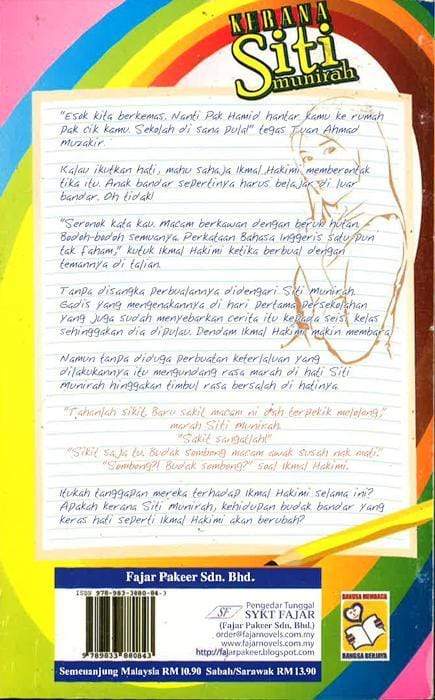 KERANA
Siti
munirah
"Esok kita berkemas. Nanti Pak Hamid hantar kamu ke rumah
Pak cik kamu. Sekolah di sana pula!" tegas Tuan Ahmad
Muzakir.
Kalau ikutkan hati, mahu sahaja Ikmal Hakimi memberontak
tika itu. Anak bandar sepertinya harus belajar di luar
bandar. Oh tidak!
"Seronok kata kau. Macam berkawan dengan beruk hutan.
Bodoh-bodoh semuanya. Perkataan Bahasa Inggeris satu pun
tak faham," kutuk Ikmal Hakimi ketika berbual dengan
temannya di talian.
Tanpa disangka perbualannya didengari Siti Munirah.
Gadis yang mengenakannya di hari pertama persekolahan
yang juga sudah menyebarkan cerita itu kepada seisi kelas
sehinggakan dia dipulau. Dendam Ikmal Hakimi makin membara.
Namun tanpa diduga perbuatan keterlaluan yang
dilakukannya itu mengundang rasa marah di hati Siti
Munirah hinggakan timbul rasa bersalah di hatinya.
"Tahanlah sikit. Baru sakit macam ni dah terpekik melolong,"
marah Siti Munirah.
"Sakit sangatlah!"
"Sikit saja tu. Budak sombong macam awak susah nak mati."
"Sombong?! Budak sombong?" soal Ikmal Hakimi.
Itukah tanggapan mereka terhadap Ikmal Hakimi selama ini?
Apakah kerana Siti Munirah, kehidupan budak bandar yang
keras hati seperti Ikmal Hakimi akan berubah?
Fajar Pakeer Sdn. Bhd.
ISBN 978-983-3080-84-3
9 789833 080843
SF
Pengedar Tunggal
SYKT FAJAR
(Fajar Pakeer Sdn. Bhd.)
order@fajarnovels.com.my
www.fajarnovels.com.my
http://fajarpakeer.blogspot.com
BANGSA MEMBACA
BANGSA BERJAYA
Semenanjung Malaysia RM 10.90 Sabah/Sarawak RM 13.90